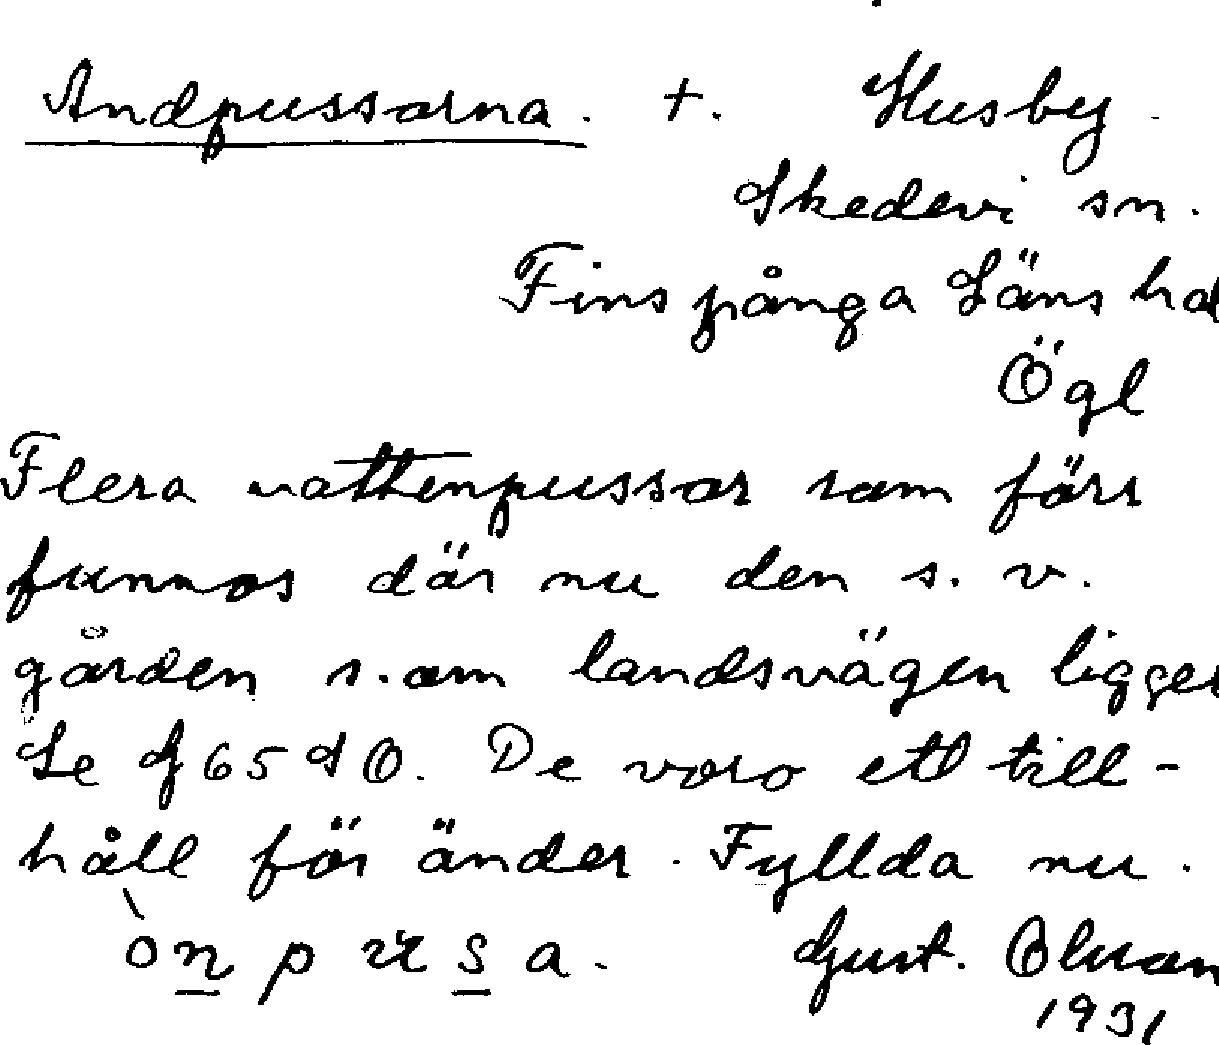 Andpussarna. +. Husby.
Skedevi sn.
Finspånga Läns hd
Ögl
Flera vattenpussar som förr
funnos där nu den s. v.
gården s. om landsvägen ligger
Se G 65 S O. De voro ett till-
håll för änder. Fyllda nu.
ò n p u s a. Gust. Olsson
1931